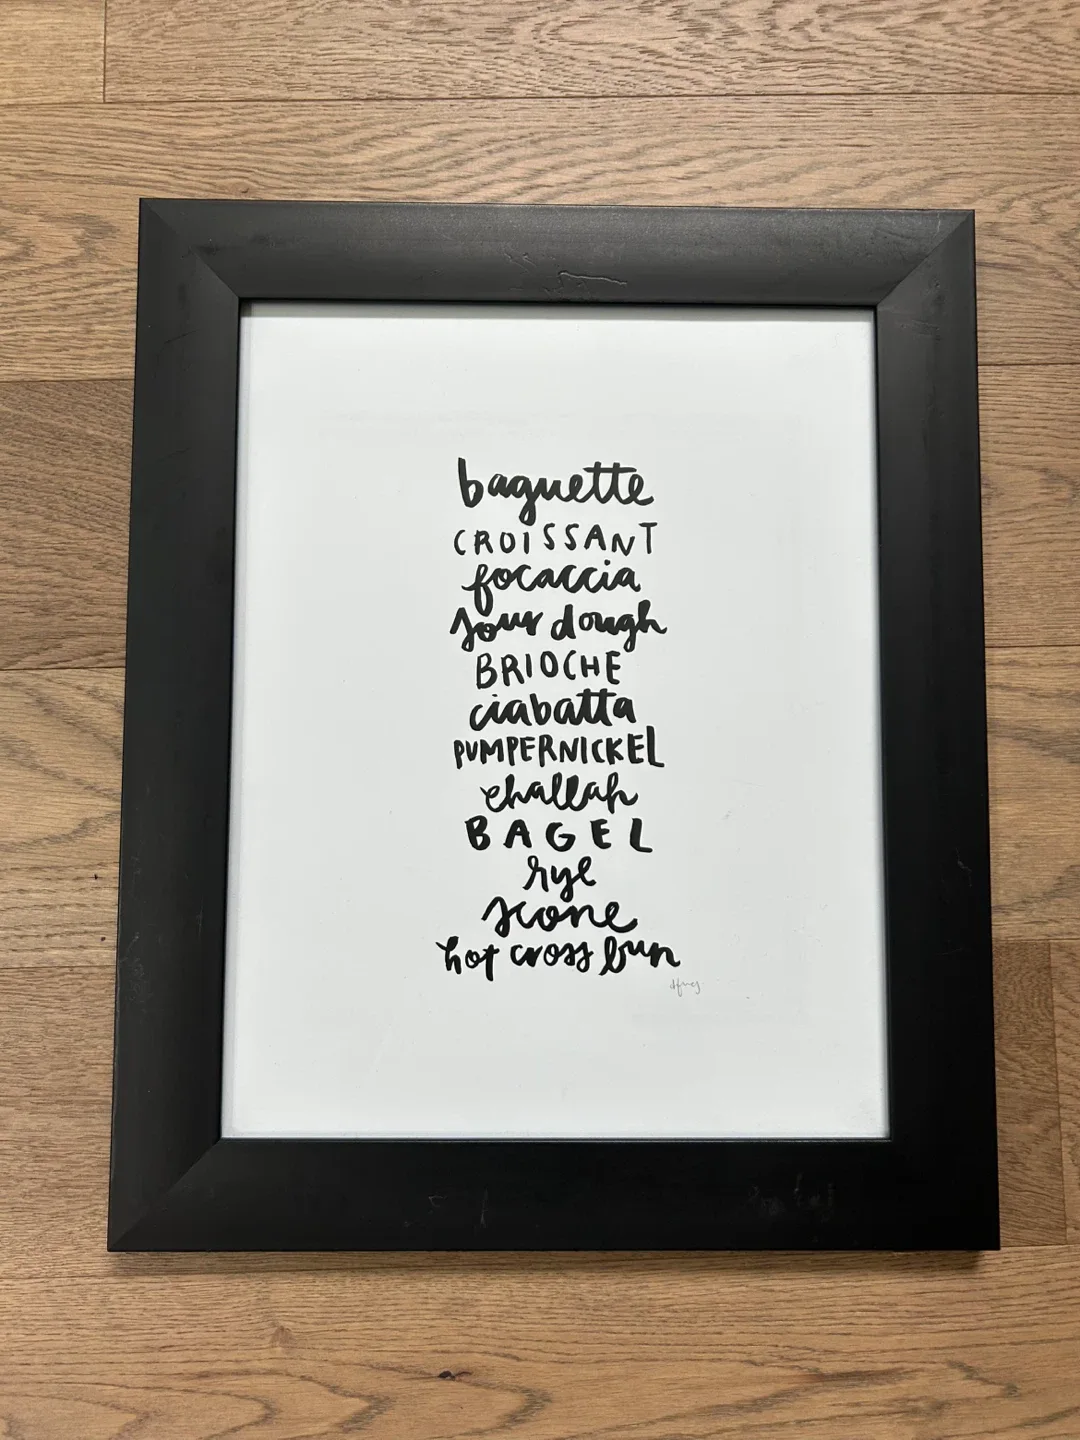 baguette
CROISSANT
focaccia
sour dough
BRIOCHE
ciabatta
PUMPERNICKEL
challah
BAGEL
rye
scone
hot cross bun